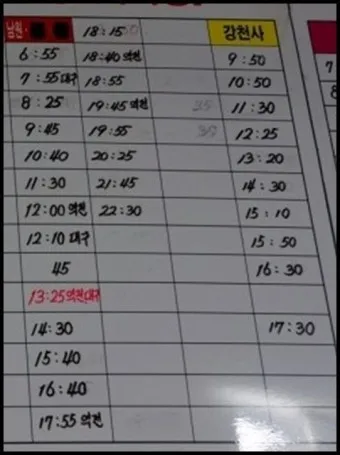 18:15
강천사
6:55
18:40 역전
9:50
7:55 대구
18:55
10:50
7
8:25
19:45 역전
35
11:30
8
9:45
19:55
12:25
10:40
20:25
13:20
11:30
21:45
14:30
12:00 역전
22:30
15:10
12:10 대구
15:50
45
16:30
13:25 역전,대구
14:30
17:30
15:40
16:40
17:55 역전